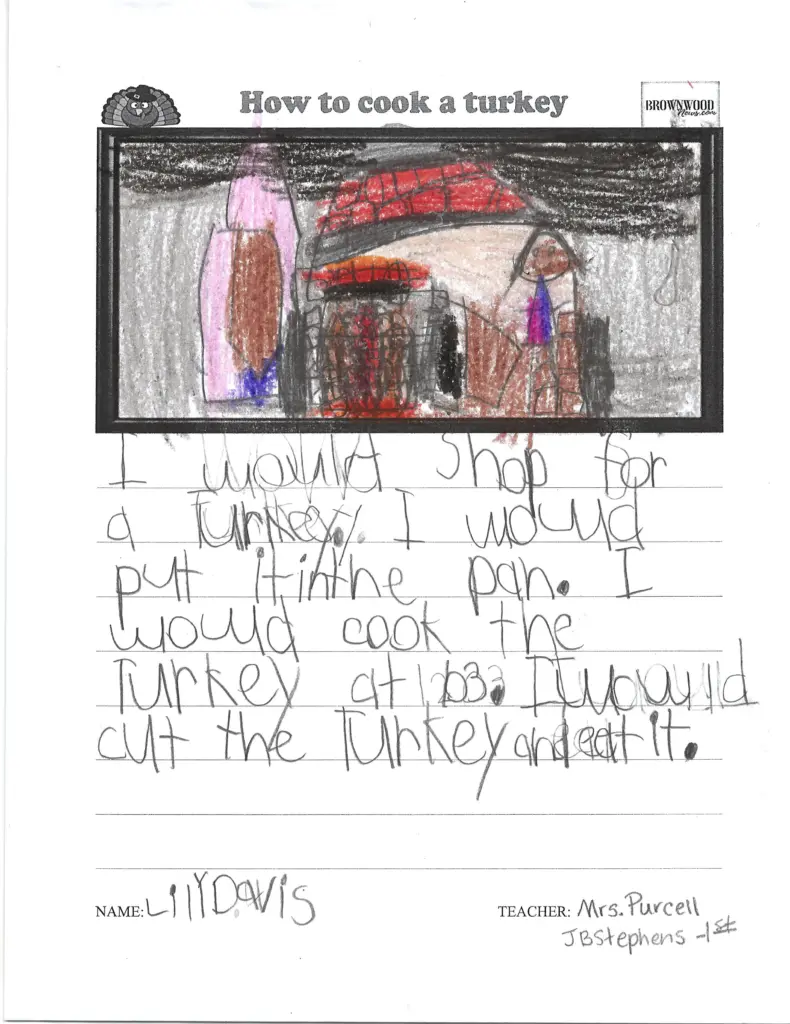 How to cook a turkey
BROWNWOOD
News.com
I would Shop for
a Turkey. I would
putt it in the pan. I
would cook the
Turkey at 1203. I would
cut the Turkey and eat it.
NAME: LillY DAVis
TEACHER: Mrs. Purcell
JBStephens -1st